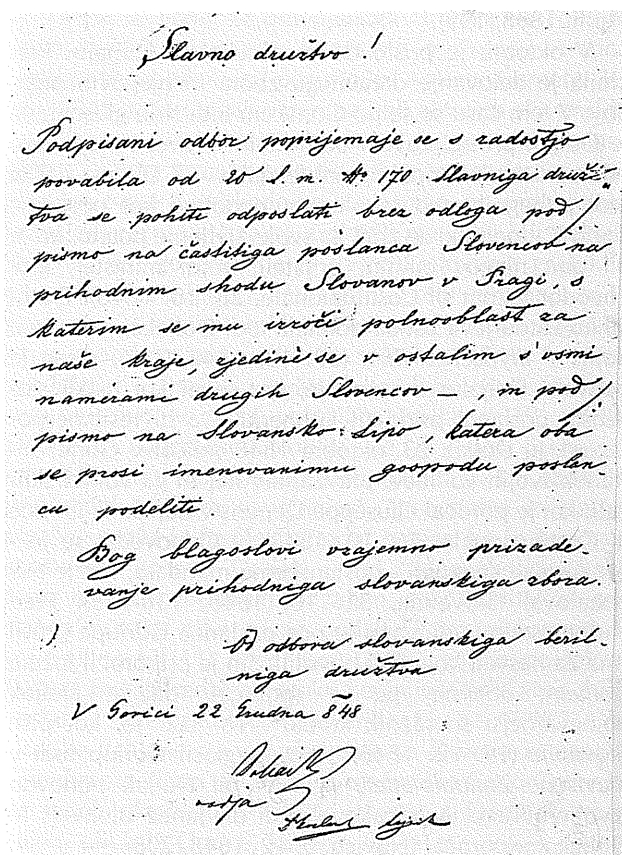 Slavno družtvo!
Podpisani odbor poprijemaje se s radostjo
povabila od 20 l. m. No 170 Slavniga druž-
tva se pohiti odposlati brez odloga pod/
pismo na častitiga poslanca Slovencov na
prihodnim shodu Slovanov v Pragi, s
katerim se mu izroči polnooblast za
naše kraje, zjedinè se v ostalim s'vsmi
namerami drugih Slovencov —, in pod/
pismo na Slovansko Lipo, katera oba
se prosi imenovanimu gospodu poslan-
cu podeliti
Bog blagoslovi vzajemno prizade-
vanje prihodniga slovanskiga zbora.
Od odbora slovanskiga beril-
niga družtva
V Gorici 22 Grudna 848
vodja